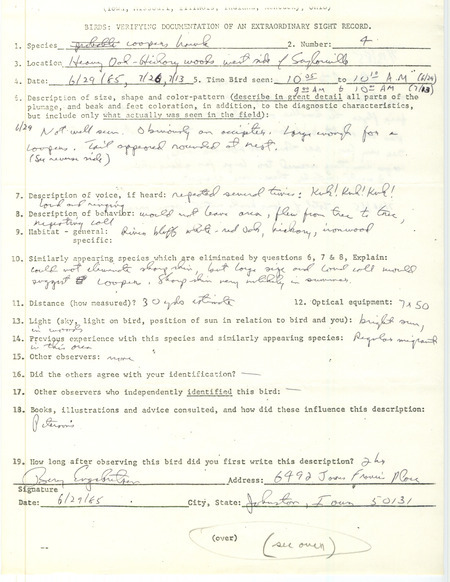 BIRDS: VERIFYING DOCUMENTATION OF AN EXTRAORDINARY SIGHT RECORD.
1. Species probable coopers hawk 2. Number: 4
3. Location Heavy Oak-Hickory woods west side of Saylorville
4. Date: 6/29/85, 7/26, 7/13 5. Time Bird seen: 10 05 to 10 10 A.M (6/29)
9 00 AM to 10 00 AM (7/13)
6. Description of size, shape and color-pattern (describe in great detail all parts of the
plumage, and beak and feet coloration, in addition, to the diagnostic characteristics,
but include only what actually was seen in the field):
6/29 Not well seen. Obviously an accipiter. Large enough for a
coopers. Tail appeared rounded at rest.
(See reverse side)
7. Description of voice, if heard: repeated several times: Kuh! Kuh! Kuh!
loud and ringing
8. Description of behavior: would not leave area, flew from tree to tree,
repeating call
9. Habitat - general: River bluff white-red oak, hickory, ironwood
specific:
10. Similarly appearing species which are eliminated by questions 6, 7 & 8, Explain:
could not eliminate sharp shin, but large size and loud call would
suggest Coopers. Sharp shin very unlikely in summer.
11. Distance (how measured)? 30 yds estimate 12. Optical equipment: 7x50
13. Light (sky, light on bird, position of sun in relation to bird and you): bright sun,
in woods
14. Previous experience with this species and similarly appearing species: Regular migrant
in this area
15. Other observers: none
16. Did the others agree with your identification? —
17. Other observers who independently identified this bird: —
18. Books, illustrations and advice consulted, and how did these influence this description:
Petersons
19. How long after observing this bird did you first write this description? 2 hs
Address: 6492
Signature
Date: 6/29/85 City, State: Johnston, Iowa 50131
(over) (see over)